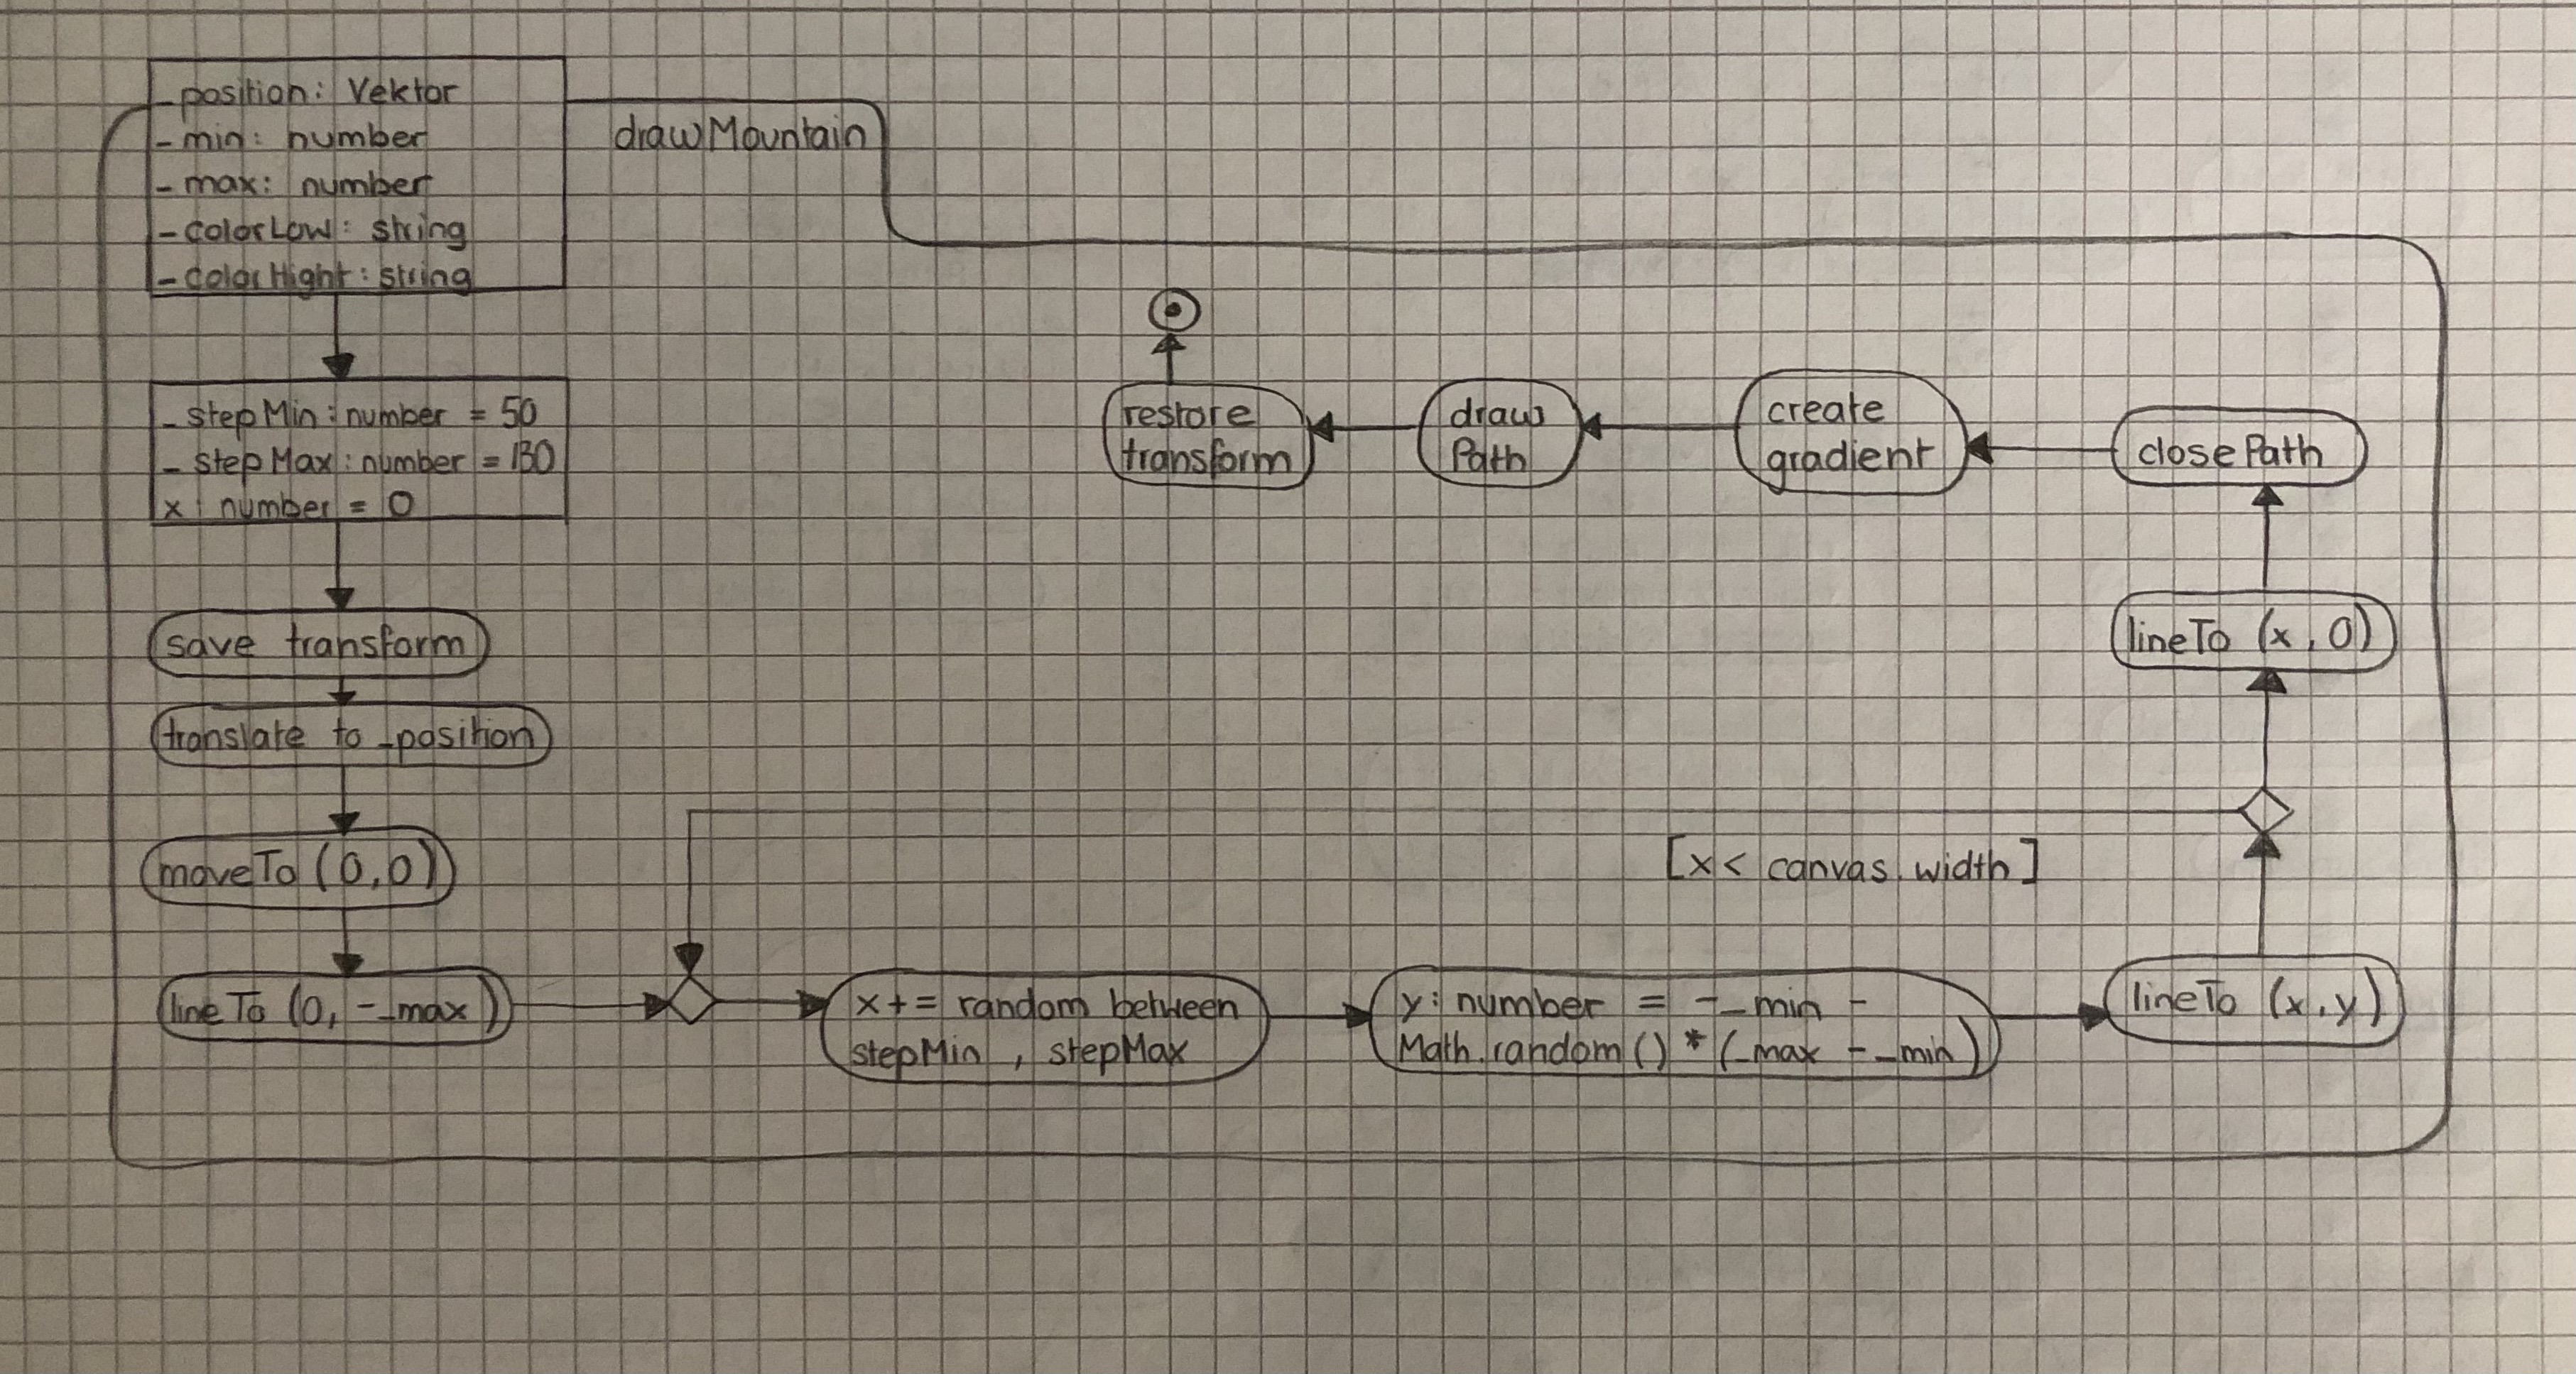 _position: Vektor
_min: number
_max: number
_colorLow: string
_colorHight: string
drawMountain
_stepMin: number = 50
_stepMax: number = 130
x: number = 0
save transform
translate to _position
moveTo (0,0)
lineTo (0, -_max)
x+= random between
stepMin , stepMax
y: number = -_min -
Math.random() * (_max - _min)
lineTo (x,y)
[x< canvas.width]
lineTo (x,0)
closePath
create
gradient
draw
Path
restore
transform